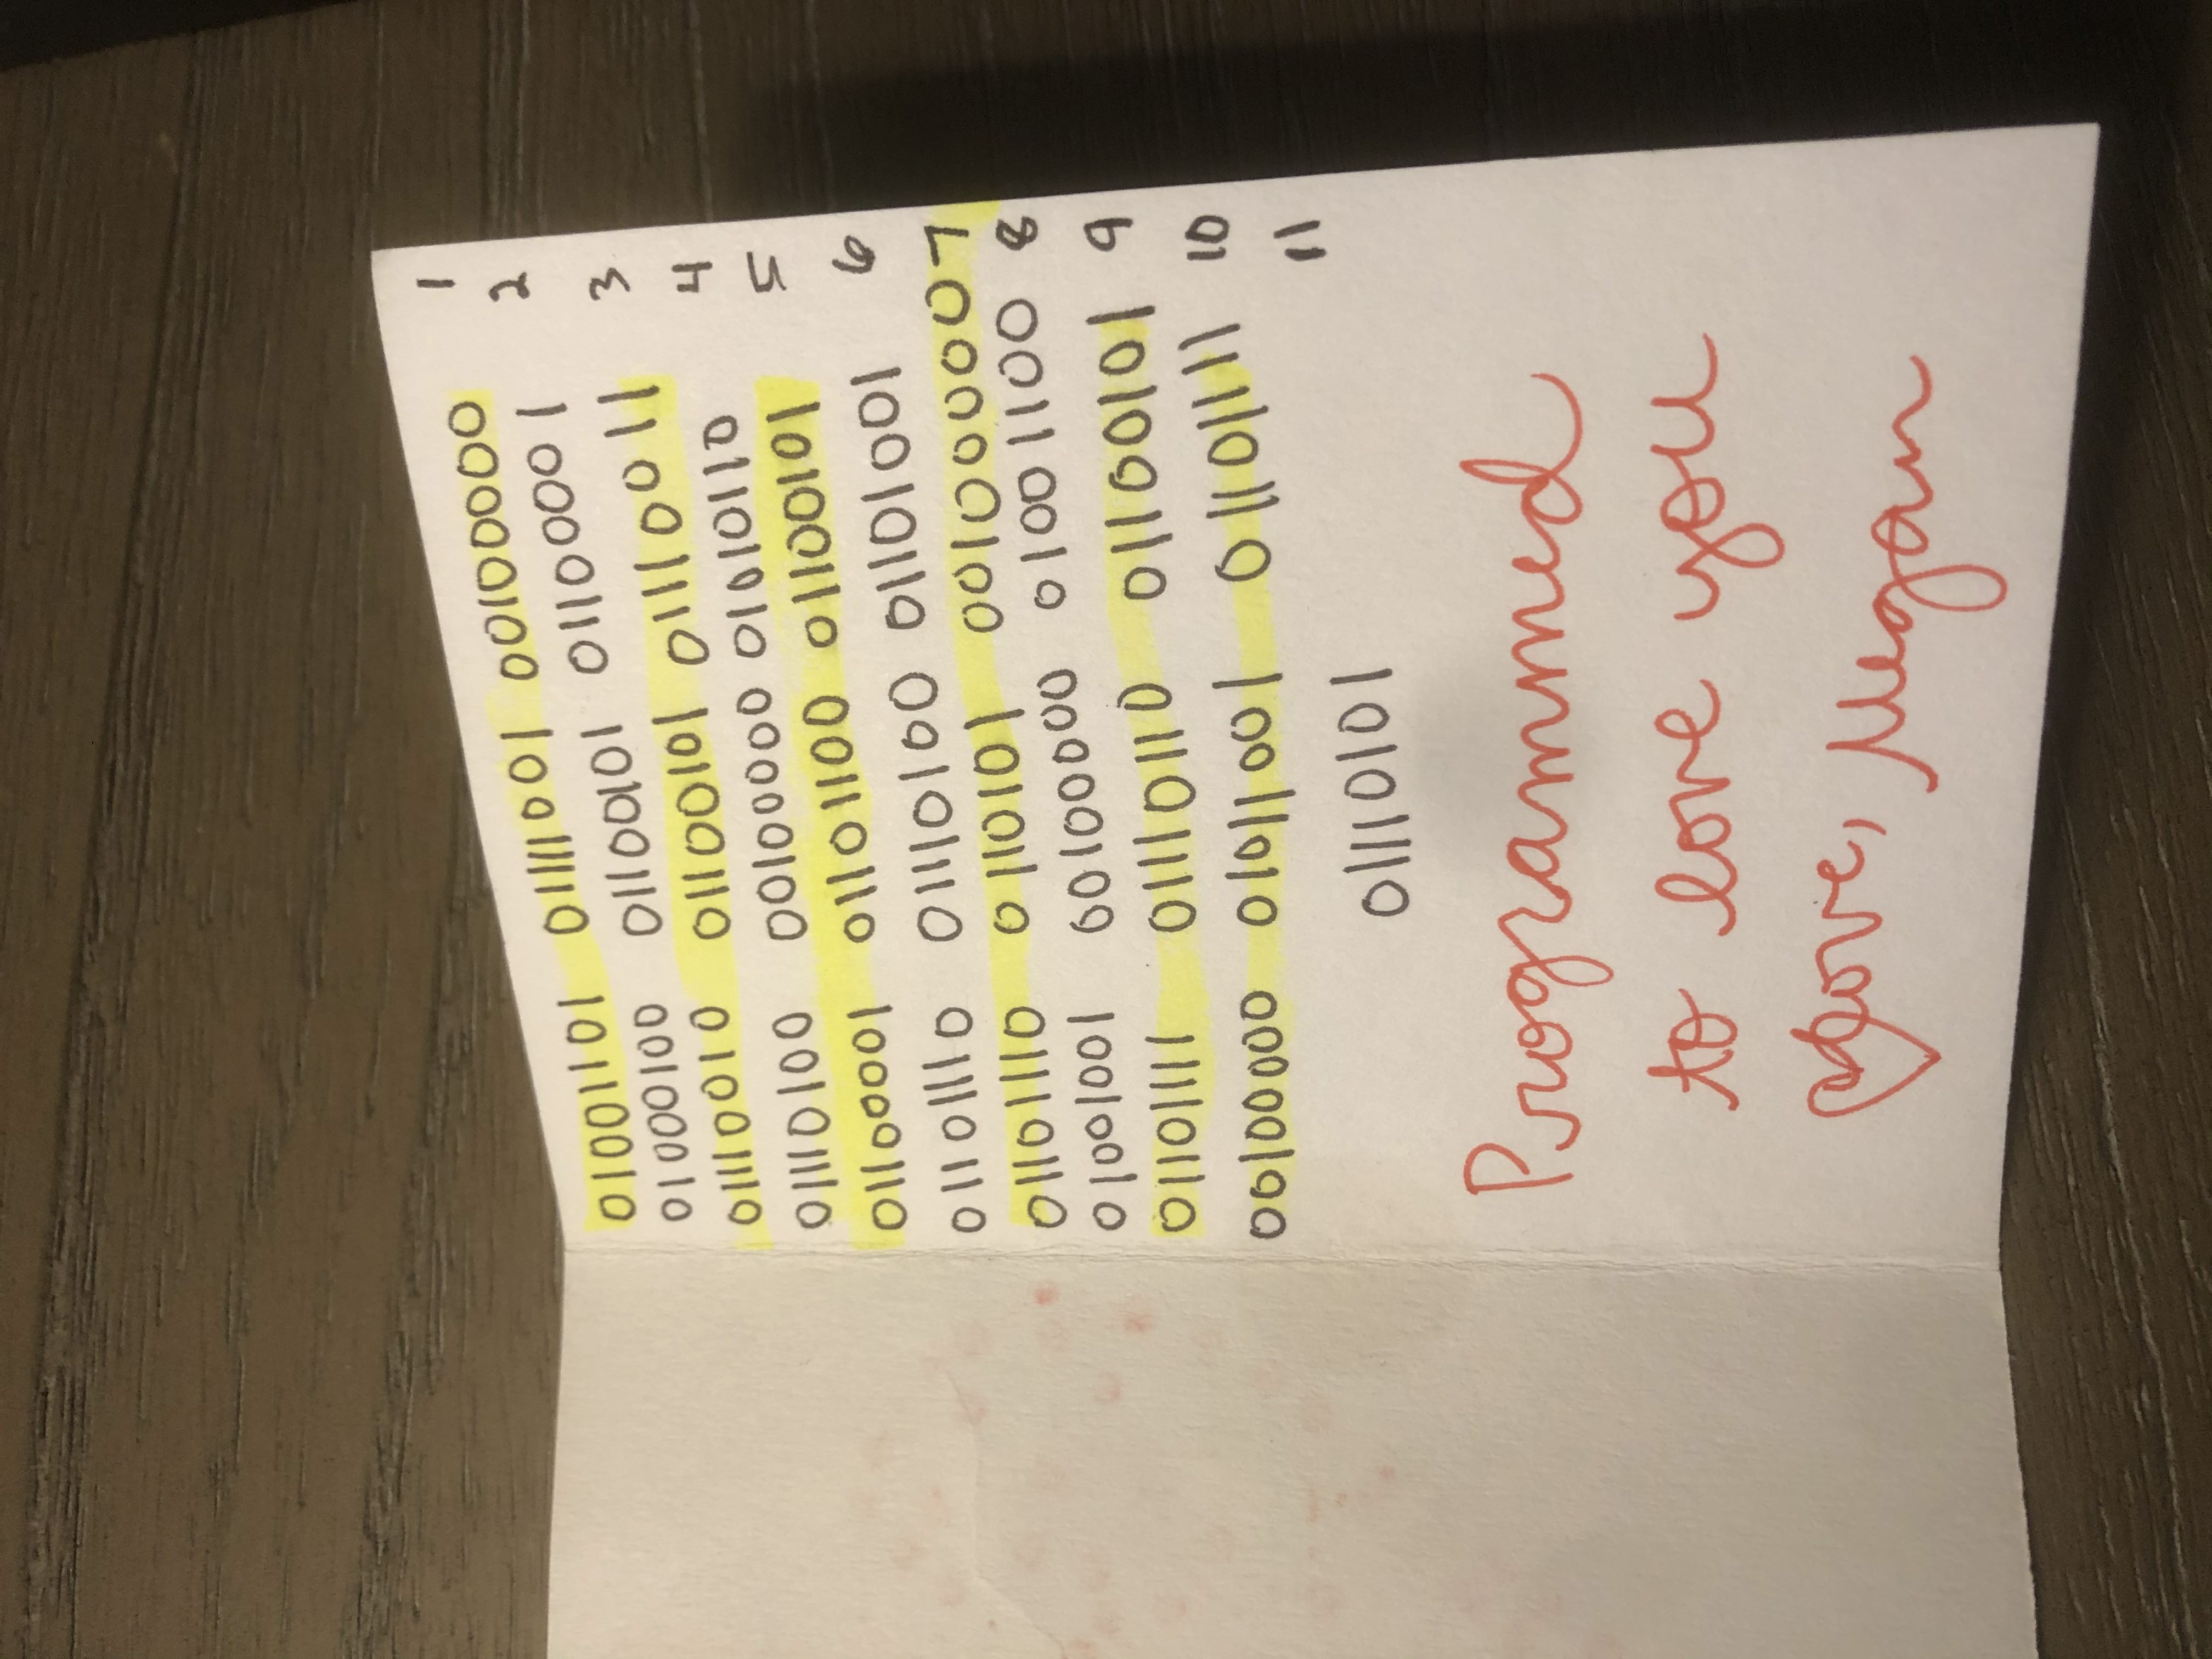 01001101 01111001 00100000 1
01000100 01100101 01100001 2
01110010 01100101 01110011 3
01110100 00100000 01010110 4
01100001 01101100 01100101 5
01101110 01110100 01101001 6
01101110 0110101 00100000 7
01001001 00100000 01001100 8
01101111 01110110 01100101 9
00100000 01011001 01101111 10
01110101 11
Programmed
to love you
Love, Megan